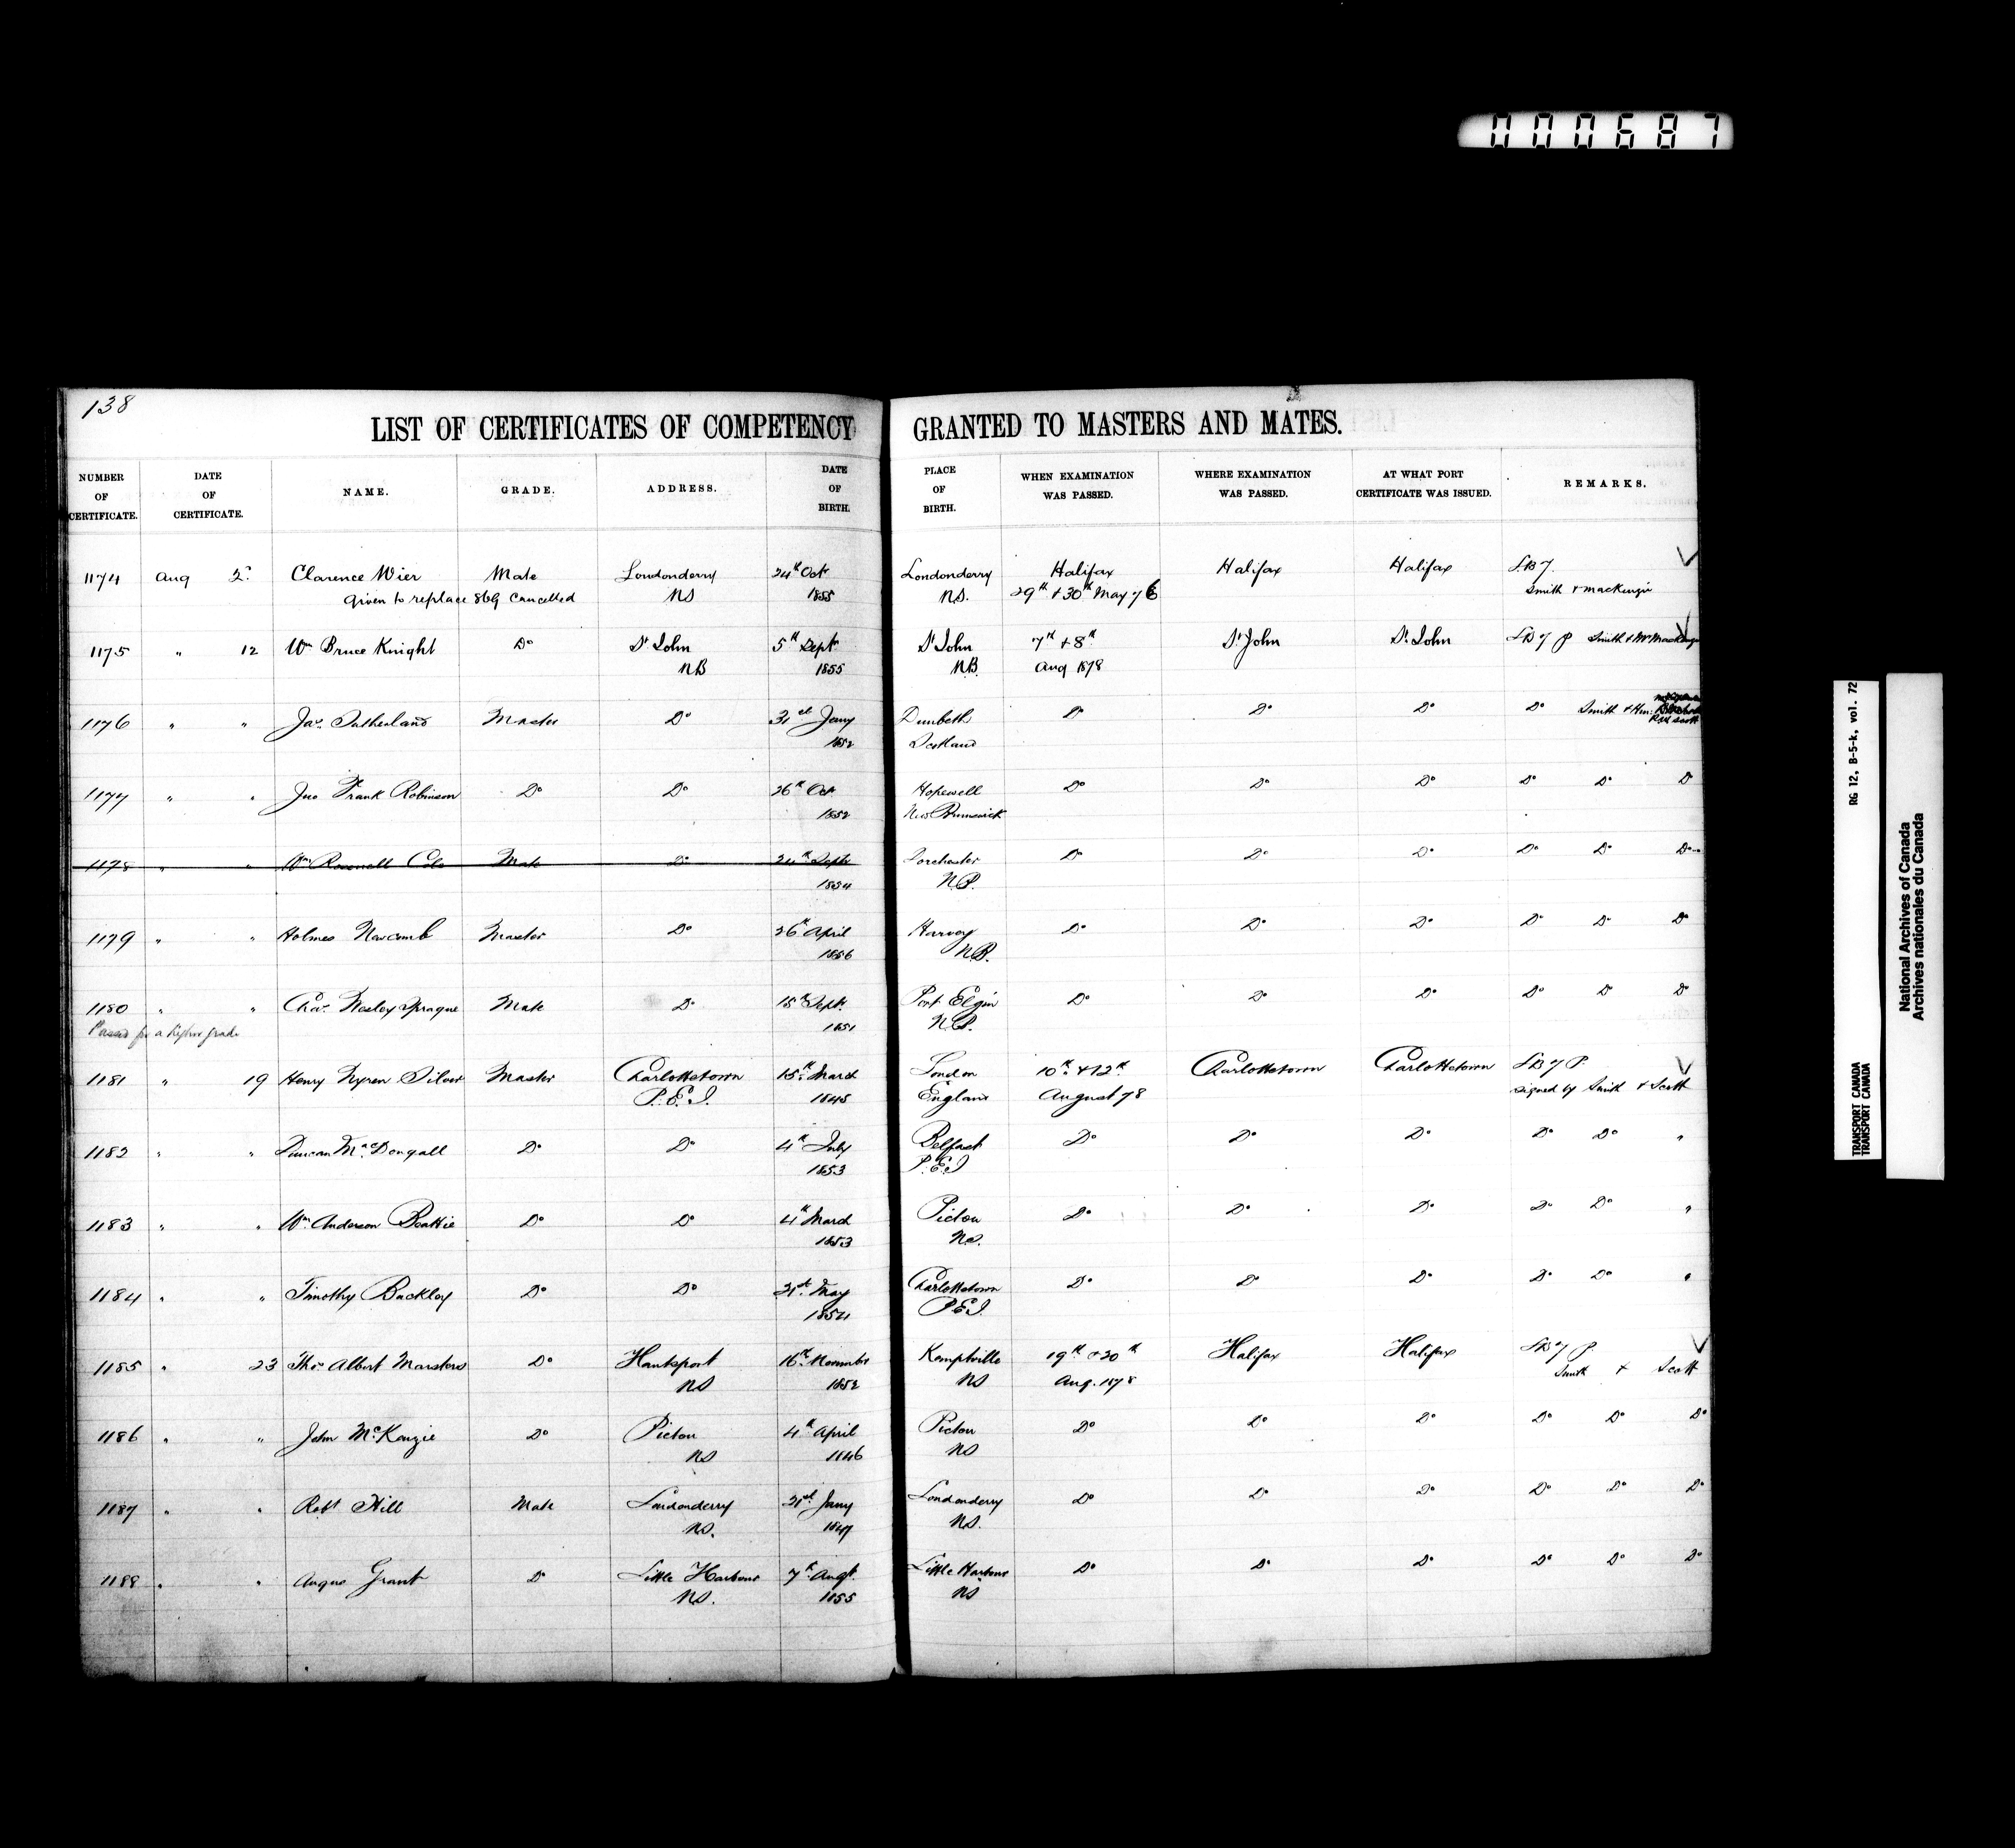 000687
138
LIST OF CERTIFICATES OF COMPETENCY GRANTED TO MASTERS AND MATES.
NUMBER OF CERTIFICATE. DATE OF CERTIFICATE. NAME. GRADE. ADDRESS. DATE OF BIRTH. PLACE OF BIRTH. WHEN EXAMINATION WAS PASSED. WHERE EXAMINATION WAS PASSED. AT WHAT PORT CERTIFICATE WAS ISSUED. REMARKS.
1174 Aug 2. Clarence Wier Mate Londonderry 24th Oct Londonderry Halifax Halifax Halifax
Given to replace 869 Cancelled NS 1855 N.S. 29th + 30th May 76 Smith + Mackenzie
1175 " 12 Wm Bruce Knight Do St John 5th Sept St John 7th + 8th St. John St. John Smith + Mr Mackenzie
NB 1855 NB. Aug 1878
1176 " " Jas. Sutherland Master Do 31st Jany Dunbeth Do Do Do Do Smith +
1852 Scotland Scott
1177 " " Jno Frank Robinson Do Do 26th Oct Hopewell Do Do Do Do Do Do
1852 New Brunswick
1178 " " Wm Cole Mate Do 24th Sept Dorchester Do Do Do Do Do Do
1854 N.B.
1179 " " Holmes Newcomb Master Do 26th April Harvey Do Do Do Do Do Do
1856 N.B.
1180 " " Chas. Wesley Sprague Mate Do 18th Sept. Port Elgin Do Do Do Do Do Do
Passed for a higher grade 1851 N.B.
1181 " 19 Henry Silver Master Charlottetown 15th March London 10th + 12th Charlottetown Charlottetown
P.E.I. 1848 England August 78 signed by Smith + Scott
1182 " " Duncan McDougall Do Do 4th July Belfast Do Do Do Do Do "
1853 P.E.I
1183 " " Wm. Anderson Beattie Do Do 4th March Pictou Do Do Do Do Do "
1853 N.S.
1184 " " Timothy Buckley Do Do 31st May Charlottetown Do Do Do Do Do "
1854 P.E.I.
1185 " 23 Thos Albert Marsters Do Hantsport 16th November Kemptville 19th + 20th Halifax Halifax
NS 1852 NS Aug. 1878 Smith + Scott
1186 " " John McKenzie Do Pictou 4th April Pictou Do Do Do Do Do Do
NS 1846 NS
1187 " " Robt Hill Mate Londonderry 31st Jany Londonderry Do Do Do Do Do Do
NS. 1847 NS.
1188 " " Angus Grant Do Little Harbour 7th Augt. Little Harbour Do Do Do Do Do Do
NS. 1855 NS
RG 12, B-5-k, vol. 72
TRANSPORT CANADA
TRANSPORT CANADA
National Archives of Canada
Archives nationales du Canada